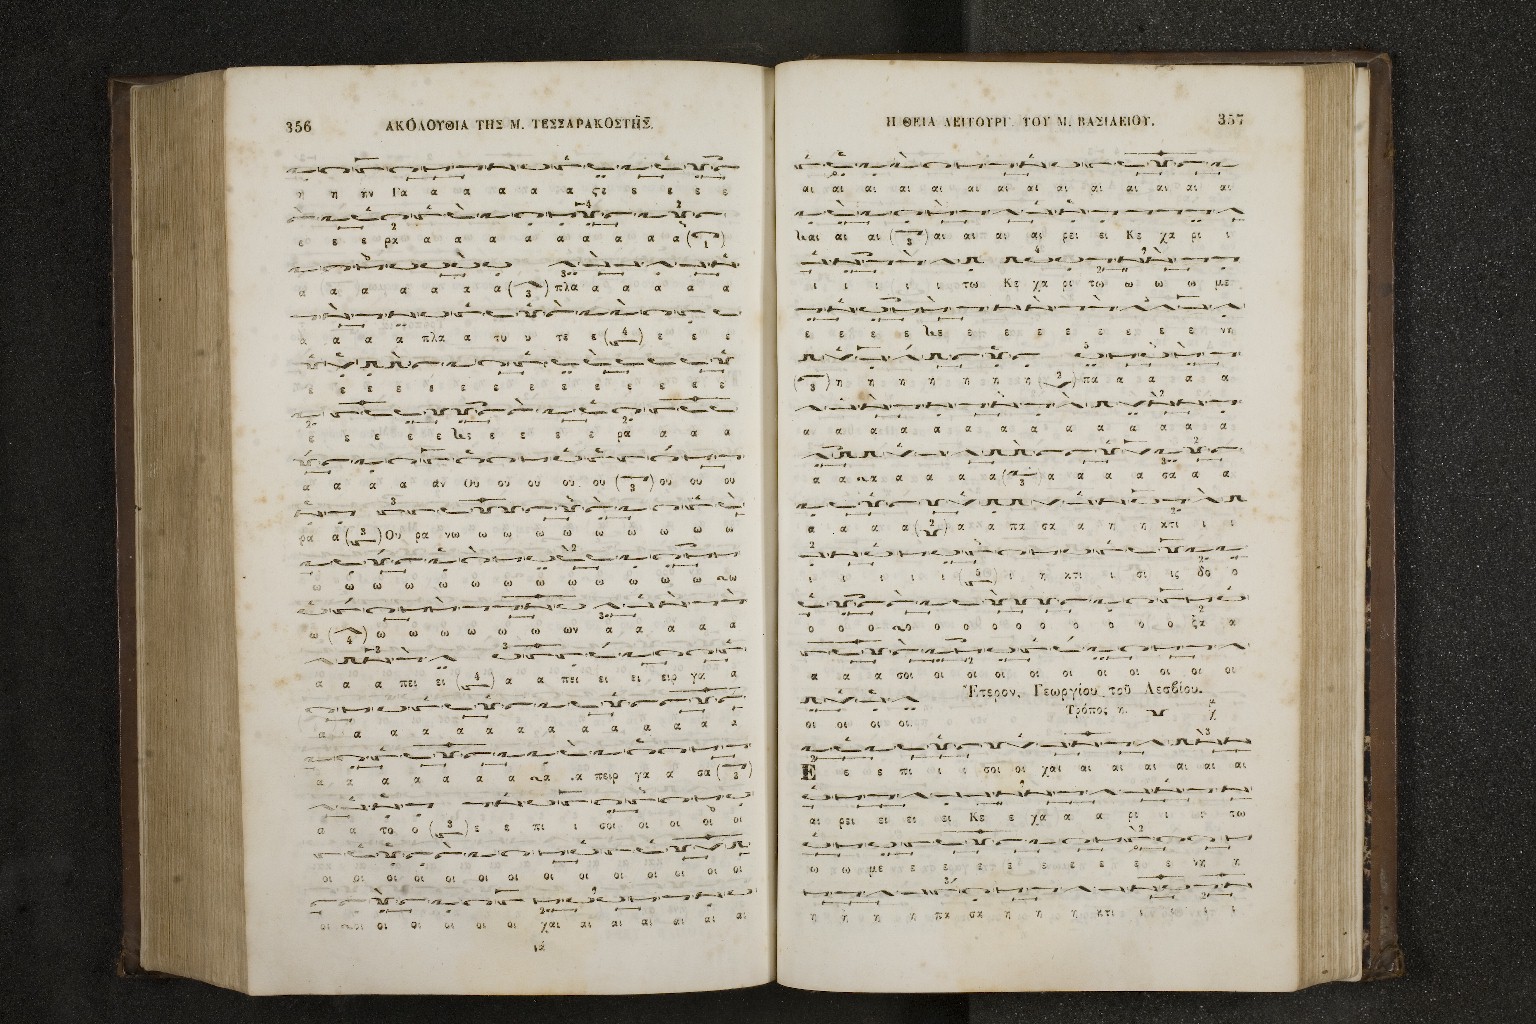 356 ΑΚΟΛΟΥΘΙΑ ΤΗΣ Μ. ΤΕΣΣΑΡΑΚΟΣΤΗΣ.
η η ην Γα α α α α α ζε ε ε ε ε
ε ε ε ρα α α α α α α α α α
α α α α α α α πλα α α α α α
α α α α πλα α του ου τε ε ε ε ε
ε ε ε ε ε ε ε ε ε ε ε ε ε
ε ε ε ε ε ε ε ε ε ρα α α α
α α α α αν Ου ου ου ου ου ου ου ου
ρα α Ου ρα νω ω ω ω ω ω ω ω ω
ω ω ω ω ω ω ω ω ω ω ω ω ω
ω ω ω ω ω ω ω ων α α α α α
α α α πει ει α α πει ει ει ειρ γα α
α α α α α α α α α α α α α
α α α α α α α α α πειρ γα α σα
α α το ο ε ε πι ι σοι οι οι οι οι
οι οι οι οι οι οι οι οι οι οι οι οι οι
οι οι οι οι οι οι οι χαι αι αι αι αι αι αι
ιά
Η ΘΕΙΑ ΛΕΙΤΟΥΡΓ. ΤΟΥ Μ. ΒΑΣΙΛΕΙΟΥ. 357
αι αι αι αι αι αι αι αι αι αι αι αι αι αι
αι αι αι αι αι αι αι ρει ει Κε χα ρι ι
ι ι ι ι ι τω Κε χα ρι τω ω ω ω με
ε ε ε ε ε ε ε ε ε ε ε ε νη
η η η η η η η πα α α α α
α α α α α α α α α α α α α α
α α α α α α α α α α α σα α α
α α α α α α πα σα α η η κτι ι ι
ι ι ι ι ι ι η κτι ι σι ις δο ο
ο ο ο ο ο ο ο ο ο ο ο ο ξα α
α α α σοι οι οι οι οι οι οι οι οι οι
οι οι οι οι.
Ἕτερον, Γεωργίου τοῦ Λεσβίου.
Τρόπος η.
Ε ε ε πι ι ι σοι οι χαι αι αι αι αι αι αι
αι ρει ει ει ει Κε ε χα α α ρι ι ι τω
ω ω με ε ε ε ε ε ε ε ε ε νη η
η η η η πα σα η η η κτι ι ι ι ι